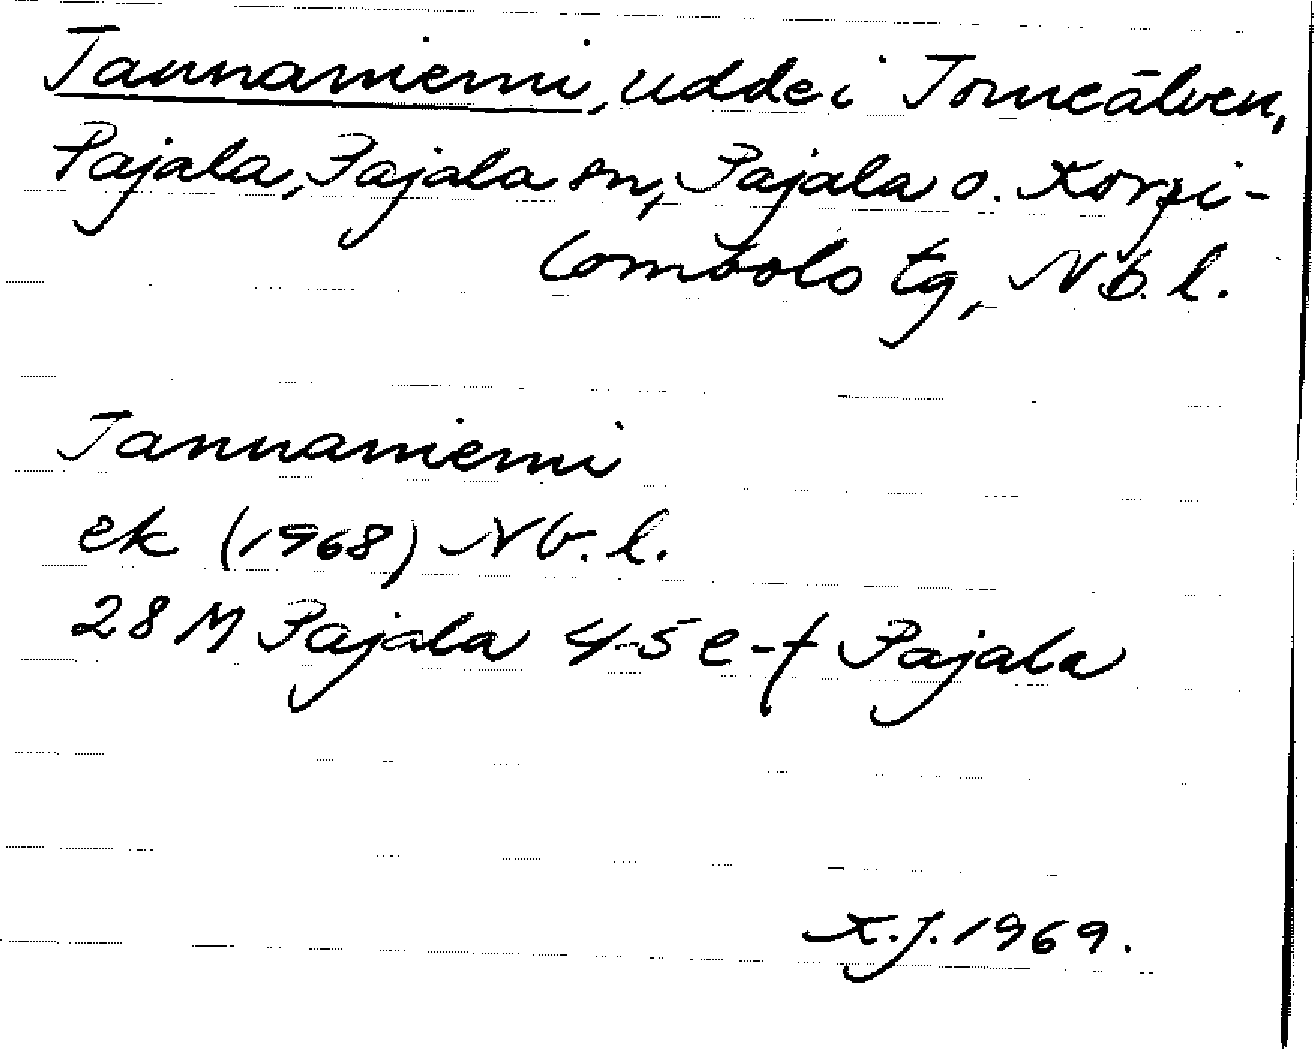 Jannaniemi, udde i Torneälven,
Pajala, Pajala sn, Pajala o. Korpi-
lombolo tg, Nb. l.
Jannaniemi
ek (1968) Nb. l.
28 M Pajala 4-5 e-f Pajala
K.J. 1969.